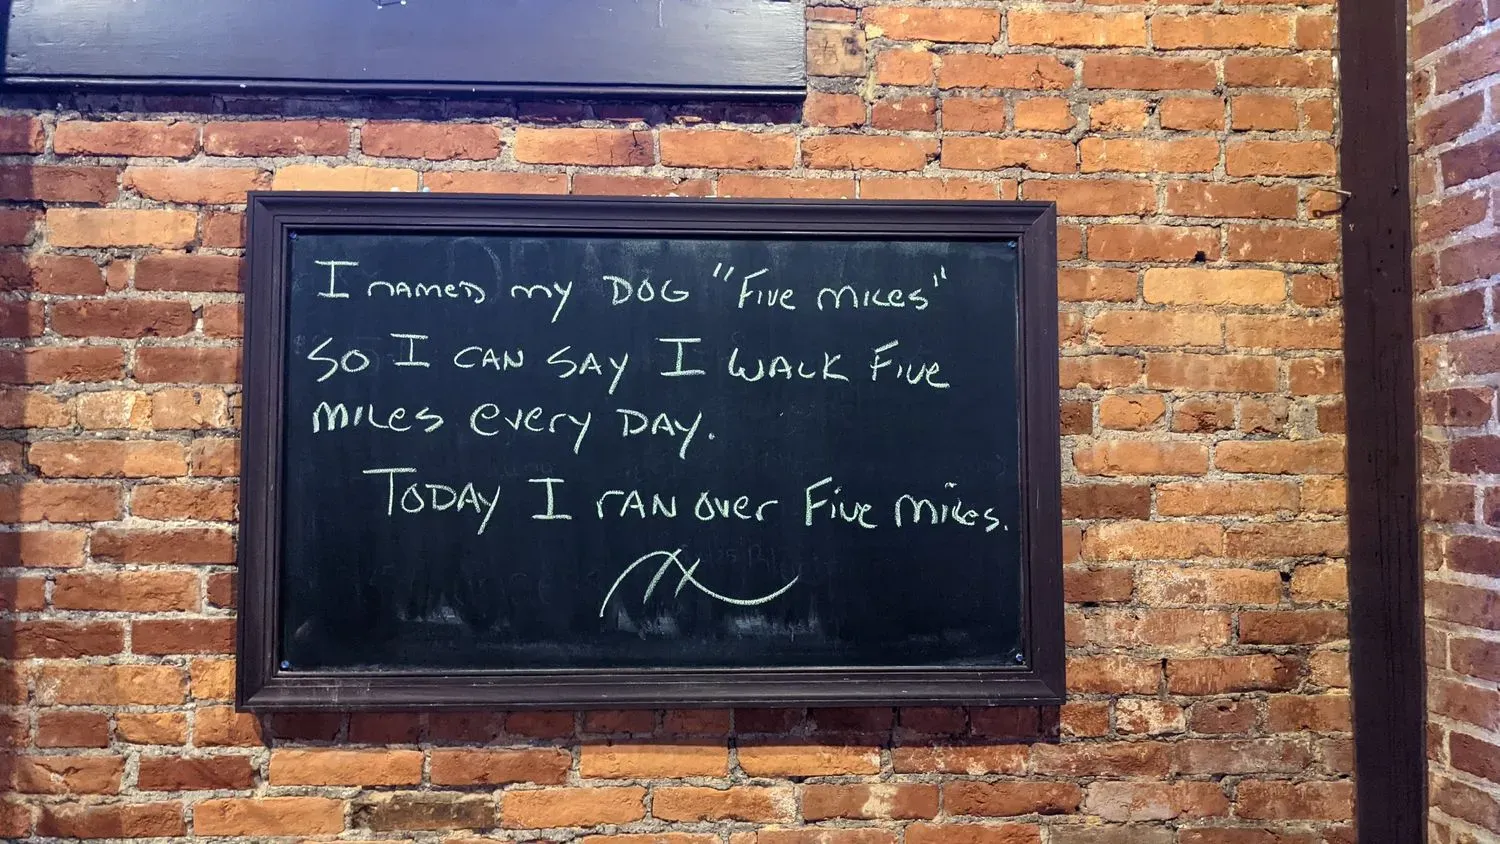 I NAMED MY DOG "FIVE MILES"
SO I CAN SAY I WALK FIVE
MILES EVERY DAY.
TODAY I RAN OVER FIVE MILES.